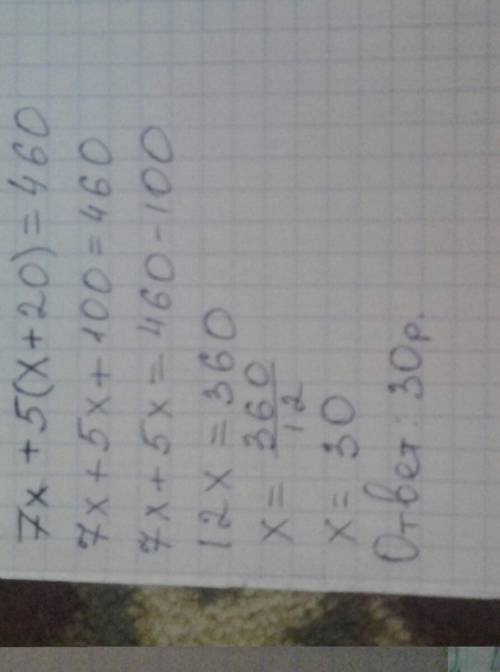 7x + 5(x + 20) = 460
7x + 5x + 100 = 460
7x + 5x = 460 - 100
12x = 360
x = 360/12
x = 30
Ответ: 30р.